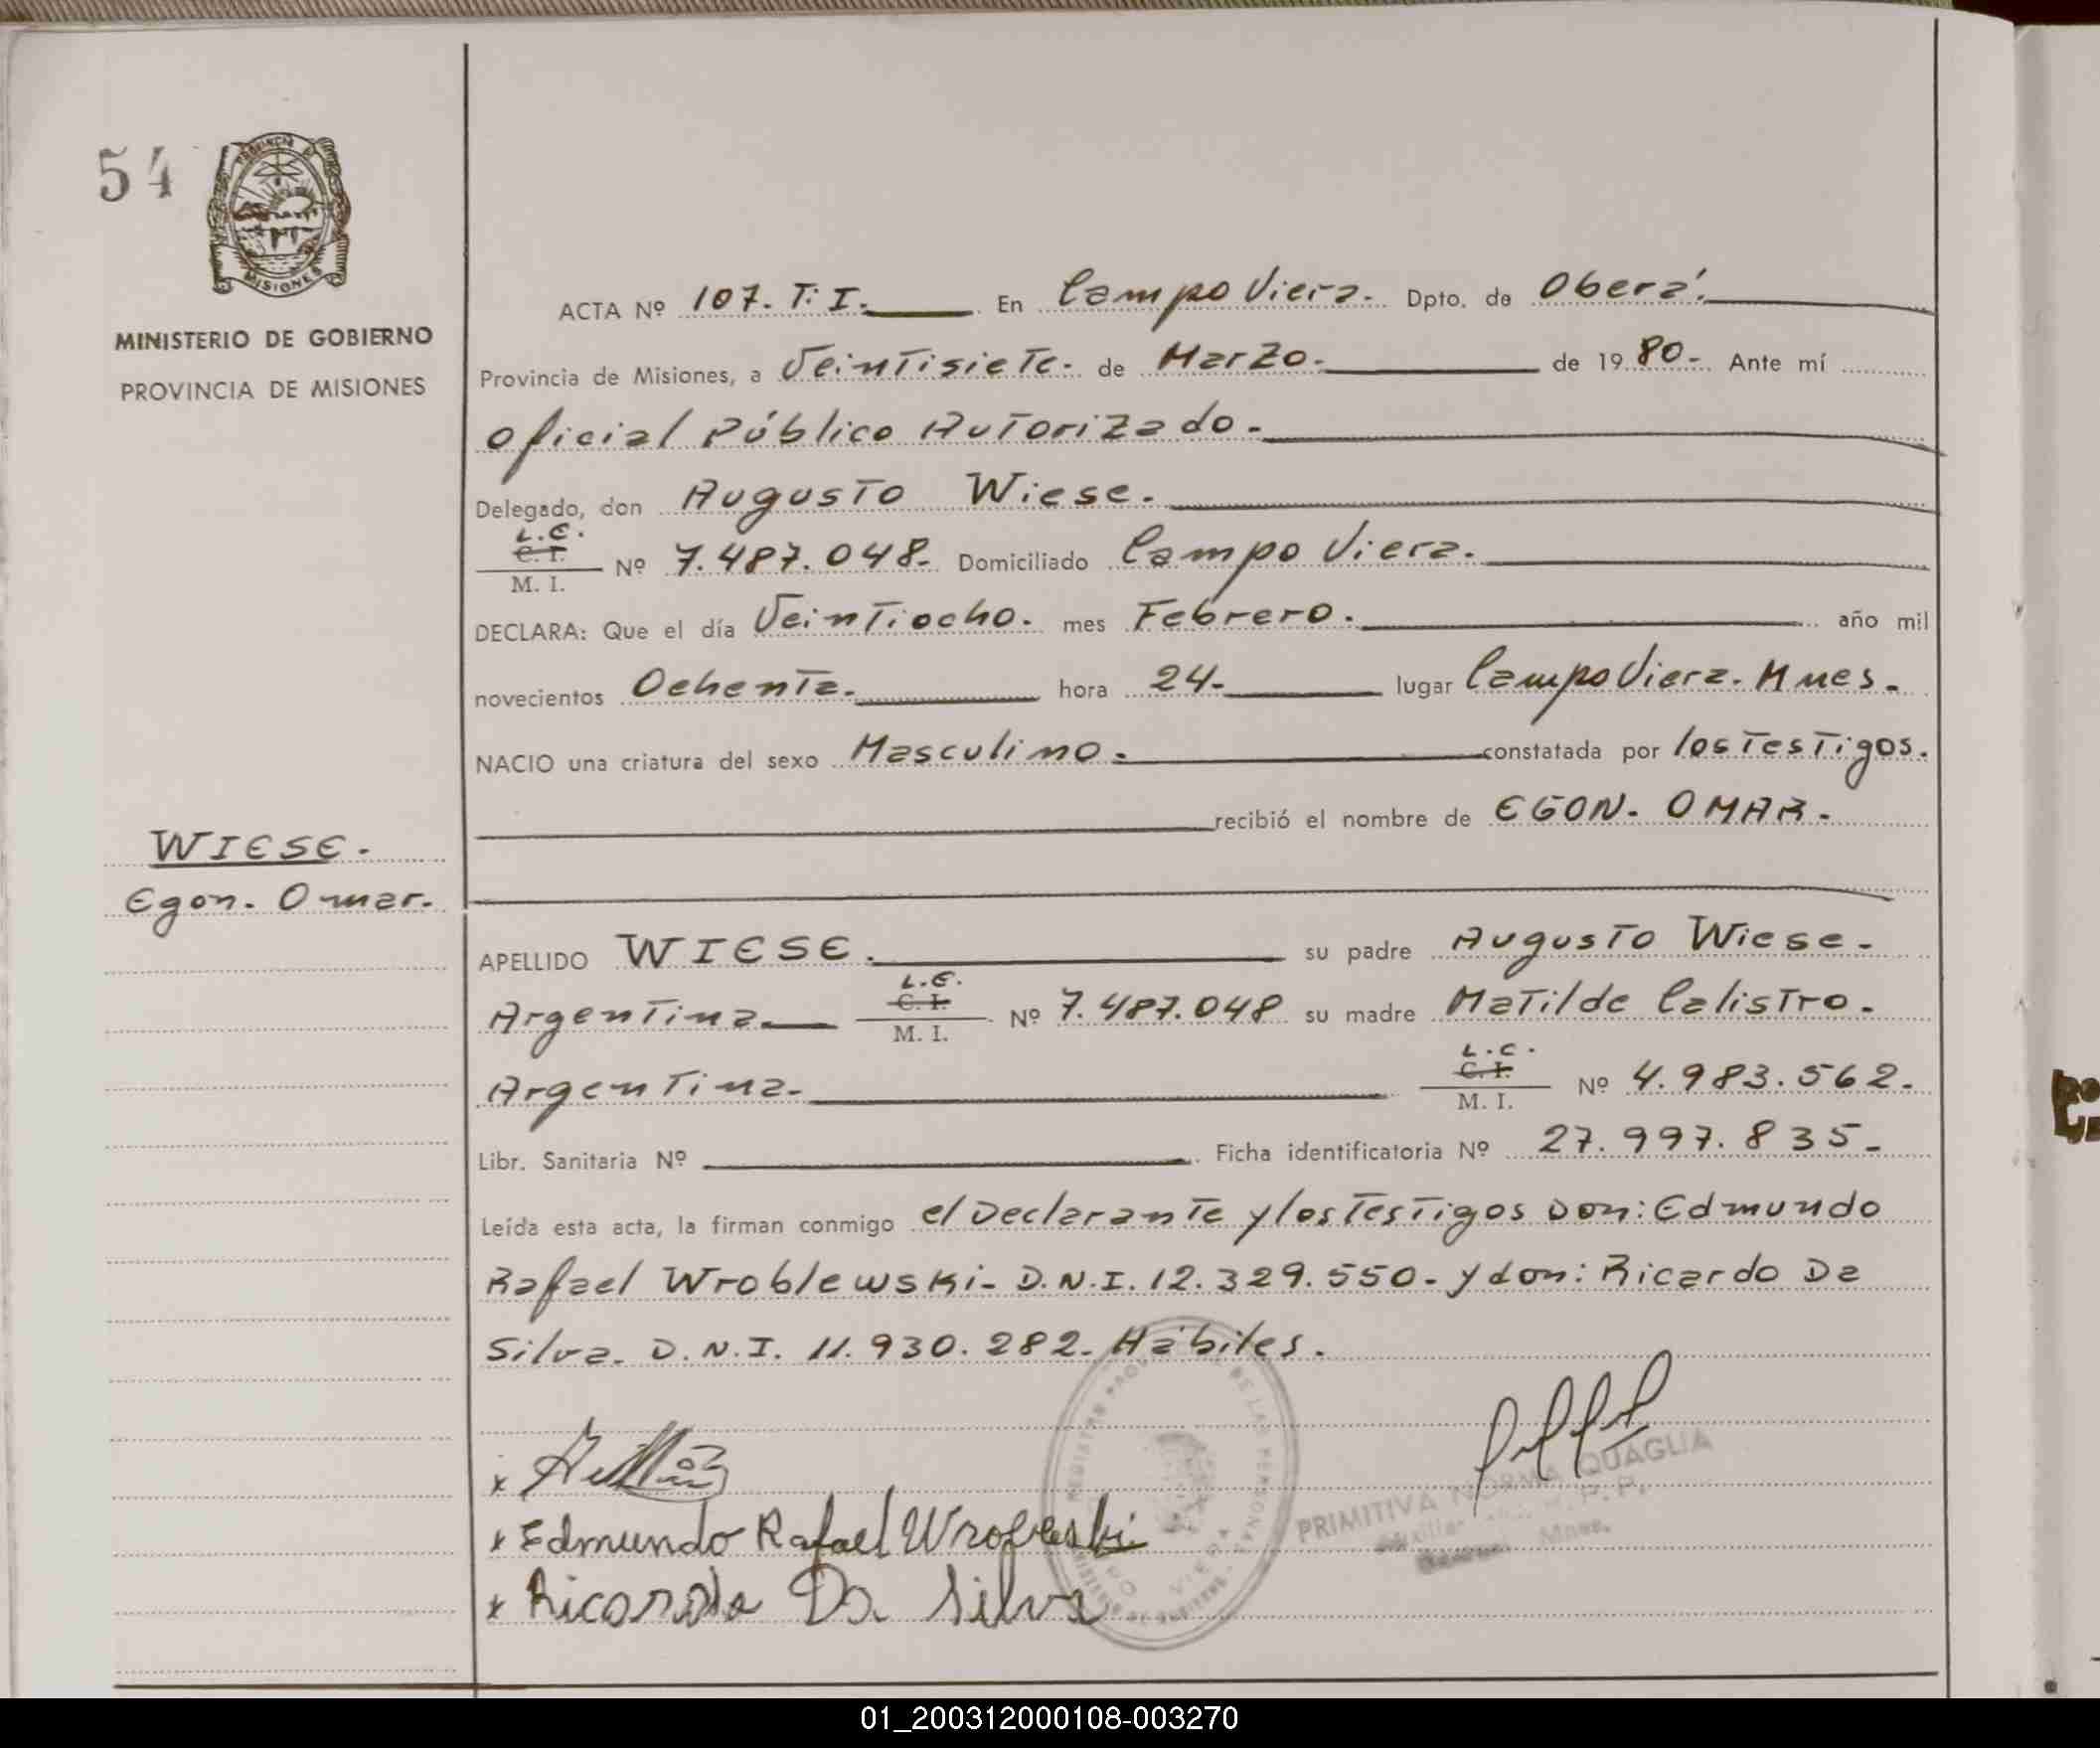 54
PROVINCIA D MISIONES
MINISTERIO DE GOBIERNO
PROVINCIA DE MISIONES
ACTA Nº 107. T: I. En Campo Viera. Dpto. de Oberá.
Provincia de Misiones, a Veintisiete. de Marzo. de 19 80. Ante mí
Oficial Público Autorizado.
Delegado, don Augusto Wiese.
L.E.
C. I.
M. I.
Nº 7.487.048. Domiciliado Campo Viera.
DECLARA: Que el día Veintiocho. mes Febrero. año mil
novecientos Ochenta. hora 24. lugar Campo Viera. Mnes.
NACIO una criatura del sexo Masculino. constatada por los Testigos.
recibió el nombre de EGON. OMAR.
WIESE.
Egon. Omar.
APELLIDO WIESE. su padre Augusto Wiese.
L.E.
C. I.
M. I.
Argentina Nº 7.487.048 su madre Matilde Calistro.
L.C.
C. I.
M. I.
Argentina. Nº 4.983.562.
Libr. Sanitaria Nº Ficha identificatoria Nº 27.997.835.
Leída esta acta, la firman conmigo el Declarante y los Testigos Don: Edmundo
Rafael Wroblewski. D.N.I. 12.329.550. y don: Ricardo Da
Silva. D.N.I. 11.930.282. Hábiles.
x Edmundo Rafael Wrobleski
x Ricardo Da Silva
PRIMITIVA NORMA QUAGLIA
01_200312000108-003270